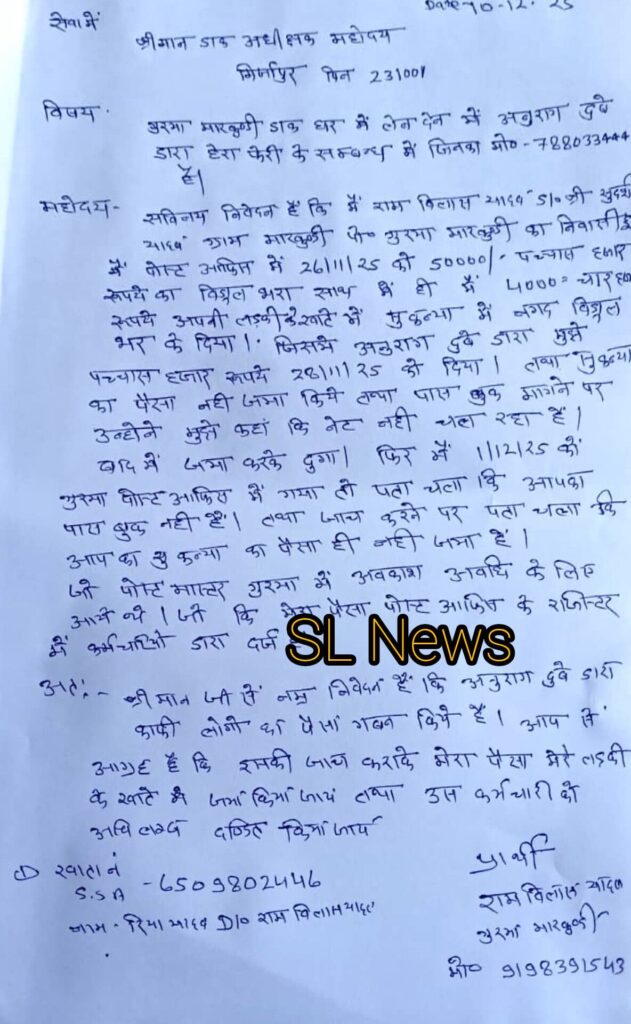 Date-10-12.25
सेवा में
श्रीमान डाक अधीक्षक महोदय
मिर्जापुर पिन 231001
विषय- गुरमा मारकुण्डी डाक घर में लेन देन में अनुराग दुवे
द्वारा हेरा फेरी के सम्बन्ध में जिनका मो०-788033444
है।
महोदय- सविनय निवेदन है कि मैं राम विलास यादव S/० श्री सुदर्शन
यादव ग्राम मारकुण्डी पो० गुरमा मारकुण्डी का निवासी हूँ
मैं पोस्ट आफिस में 26/11/25 को 50000/- पच्चास हजार
रूपये का विड्राल भरा साथ में ही मैं 4000= चार हजार
रूपये अपनी लड़की के खाते में सुकन्या में नगद विड्राल
भर के दिया। जिसमे अनुराग दुवे द्वारा मुझे
पच्चास हजार रूपये 28/11/25 को दिया। तथा सुकन्या
का पैसा नही जमा किये तथा पास बुक मागने पर
उन्होने मुझे कहां कि नेट नही चल रहा है।
बाद में जमा करके दुगा। फिर मैं 1/12/25 को
गुरमा पोस्ट आफिस में गया तो पता चला कि आपका
पास बुक नही है। तथा जाच करने पर पता चला कि
आप का सुकन्या का पैसा ही नही जमा है।
जो पोस्ट मास्टर गुरमा में अवकाश अवधि के लिए
आये थे। जो कि मेरा पैसा पोस्ट आफिस के रजिस्टर
में कर्मचारिओ द्वारा दर्ज है
SL News
अतः- श्रीमान जी से नम्र निवेदन है कि अनुराग दुवे द्वारा
काफी लोगो का पैसा गबन किये है। आप से
आग्रह है कि इसकी जाच कराके मेरा पैसा मेरे लड़की
के खाते में जमा किया जाय तथा उस कर्मचारी को
अविलम्ब दण्डित किया जाये
① खाता नं
S.S.A - 6509802446
नाम - रिया यादव D/० राम विलास यादव
प्रार्थी
राम विलास यादव
गुरमा मारकुण्डी
मो० 9198391543